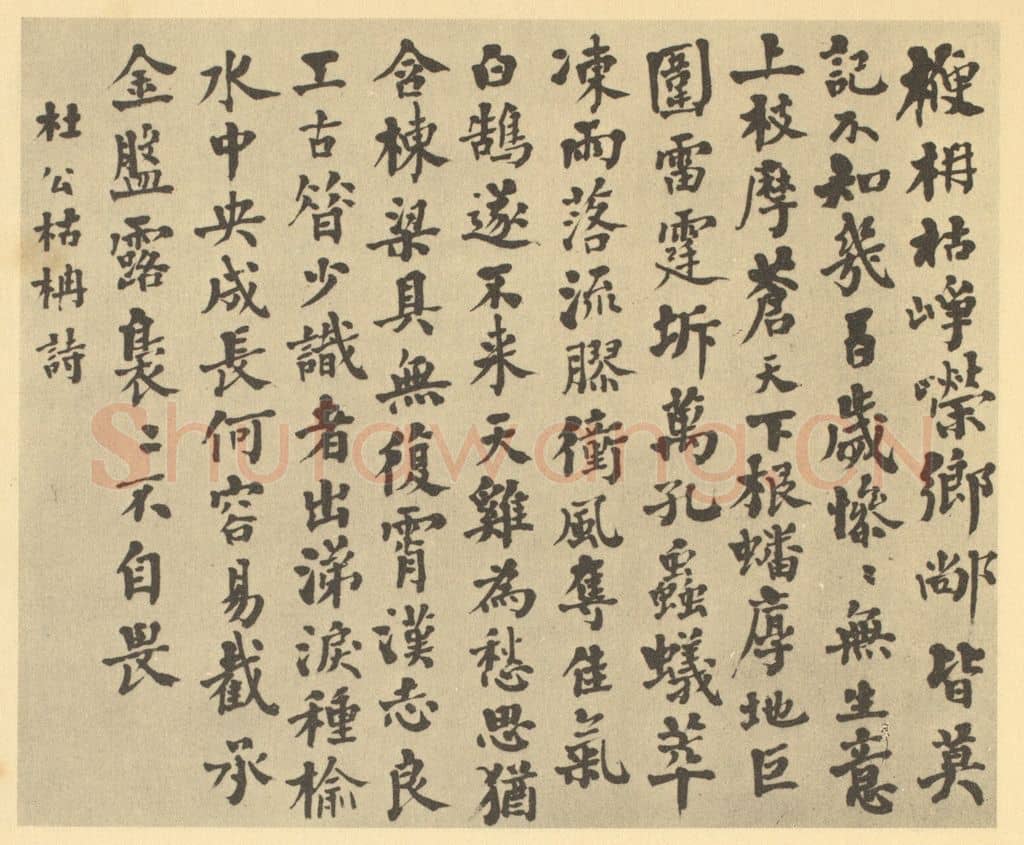 楩枏枯崢嶸鄉䣊皆莫
記不知幾百歲慘〻無生意
上枝摩蒼天下根蟠厚地巨
圍雷霆坼萬孔蟲蟻萃
凍雨落流膠衝風奪佳氣
白鵠遂不来天雞為愁思猶
含棟梁具無復霄漢志良
工古昝少識者出涕淚種榆
水中央成長何容易截承
金盤露裊〻不自畏
杜公枯枏詩
Shufawang.CN